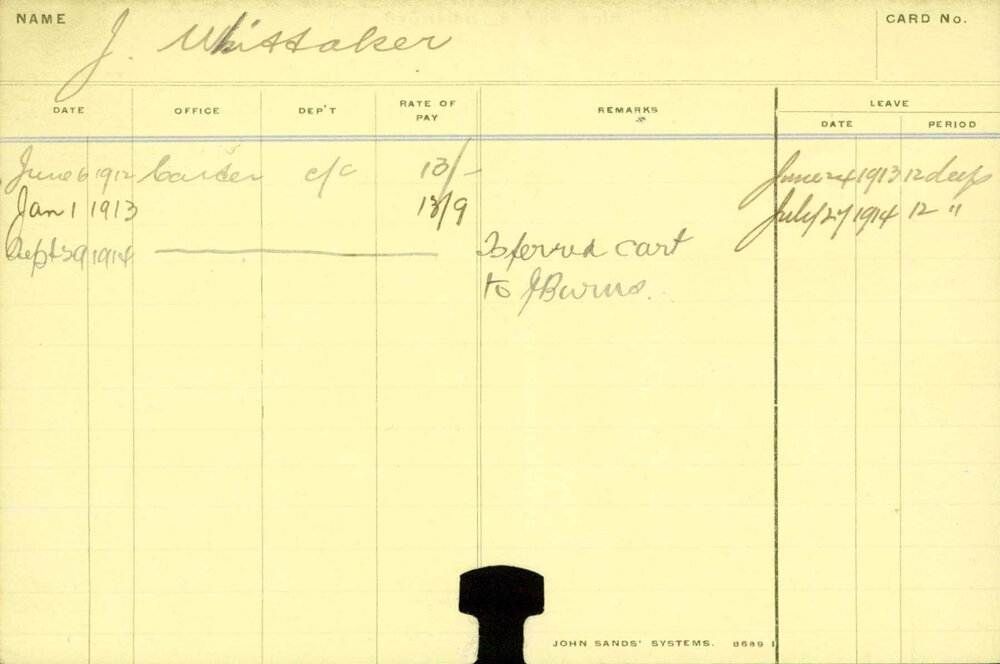 NAME J. Whittaker CARD No.
DATE OFFICE DEP'T RATE OF PAY REMARKS LEAVE
DATE PERIOD
June 6 1912 Carter c/c 13/- June 24 1913 12 days
Jan 1 1913 13/9 July 27 1914 12 "
Sept 29 1914 Tsferred cart
to J Burns.
JOHN SANDS' SYSTEMS. 8689